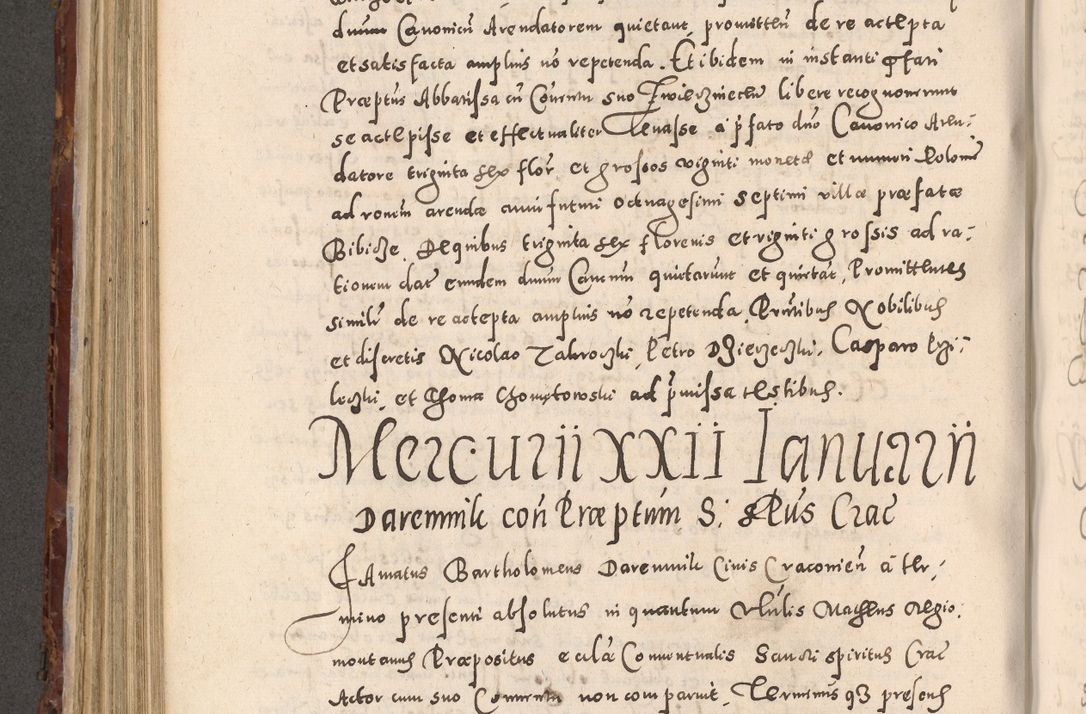 dnum Canonicū Arendatorem quietant, promitten̄ de re accepta
et satis facta amplius nō repetenda. Et ibidem in instanti
Præptus Abbatissa cū Conuentu suo Zwierziniecen̄ libere recognouerunt
se accepisse et effectualiter leuasse a p̄fato dn̄o Canonico Aren-
datore triginta sex flor, et grossos viginti monetæ et numeri Polonie
ad ronem̄ arendæ anni futuri octuagesimi septimi villæ præfatæ
Bibicze. De quibus triginta sex florenis et viginti grossis ad ra-
tionem dat̄ eundem dnum Canonicū quietarunt et quietāt, Promittentes
similr̄ de re accepta amplius nō repetenda. Pn̄tibus Nobilibus
et discretis Nicolao Petro Casparo
et Thoma Chomętowski ad p̄missa testibus.
Mercurii XXII Ianuarii
Daremnik con̄ Præptum S. Sp̄us Crac̄
Famatus Bartholomeus Daremnik Ciuis Cracouien̄ a ter-
mino presenti absolutus in quantum Vn̄lis Matheus Regio-
montanus Præpositus ecclæ Conuentualis Sancti spiritus Crac̄
Actor cum suo Conuentu non comparuit, Terminus q3 presens